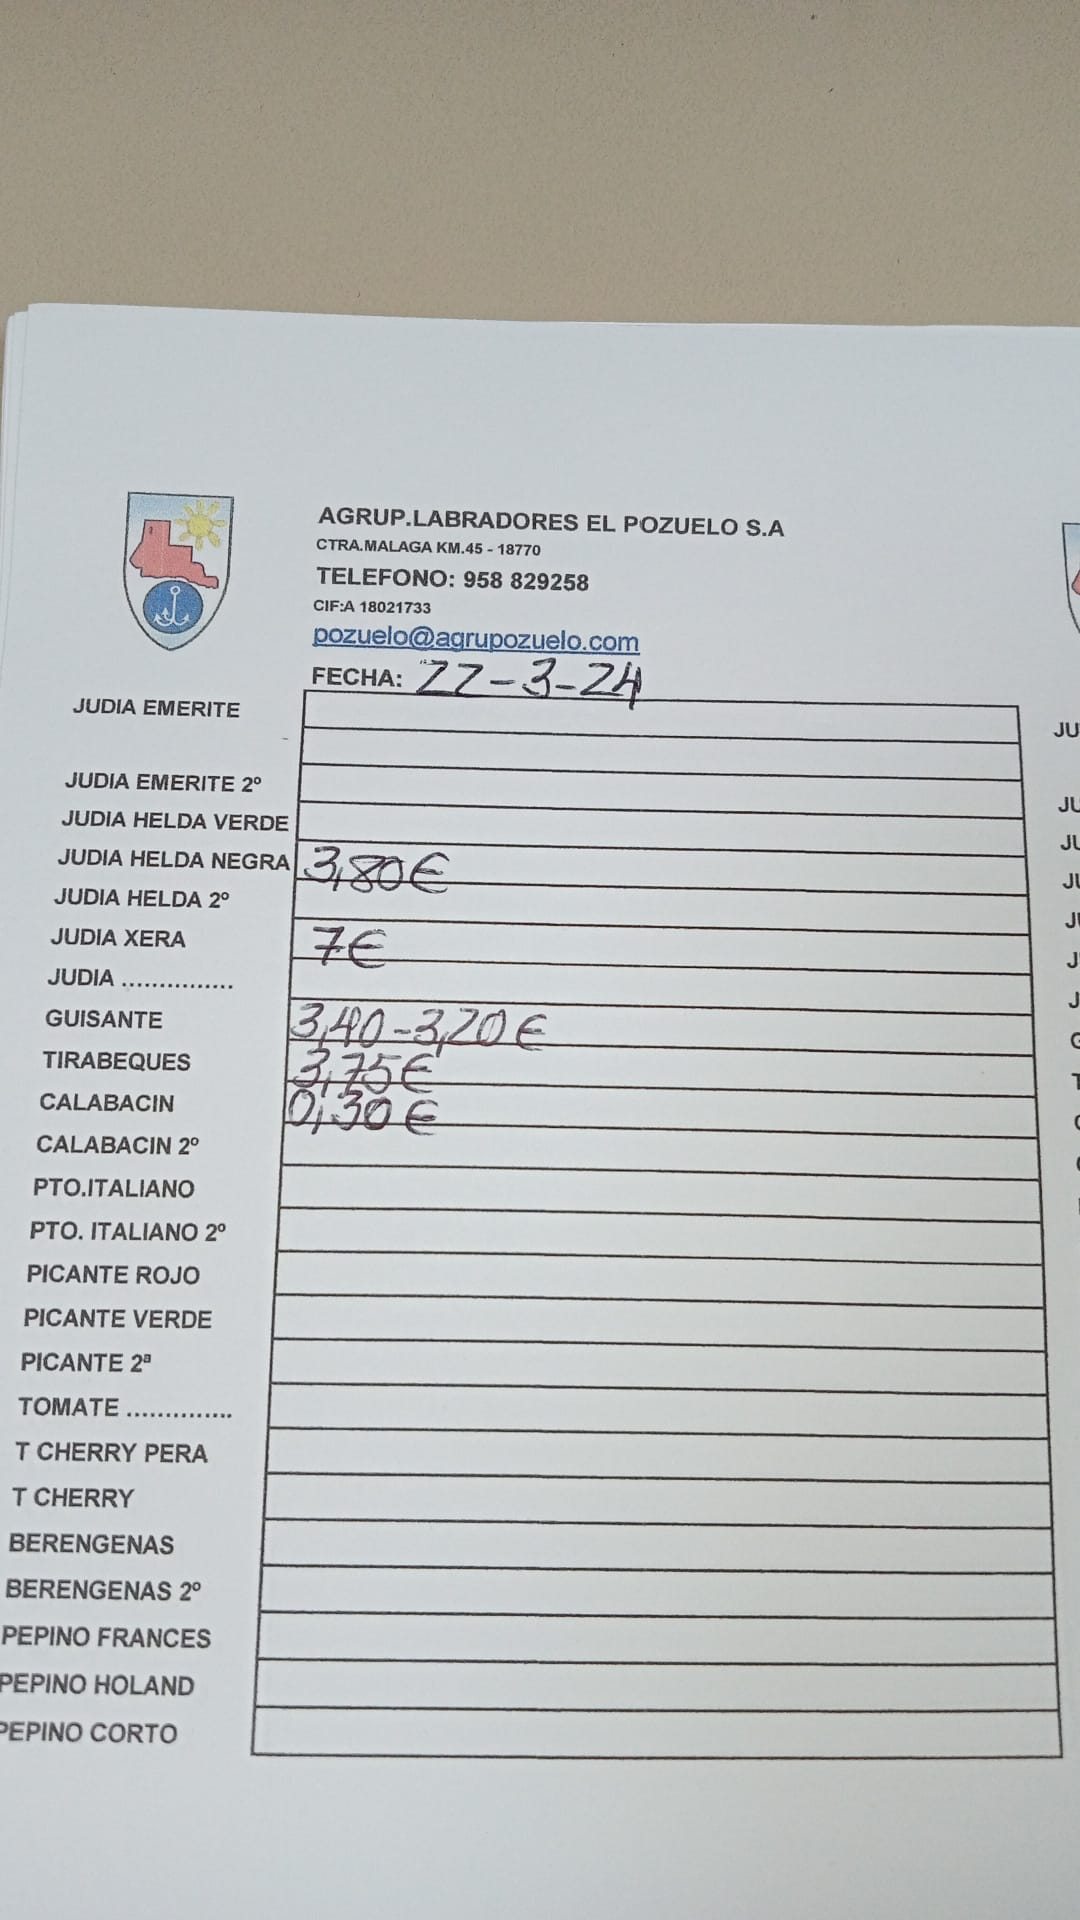 AGRUP.LABRADORES EL POZUELO S.A
CTRA.MALAGA KM.45 - 18770
TELEFONO: 958 829258
CIF:A 18021733
pozuelo@agrupozuelo.com
FECHA: 22-3-24
JUDIA EMERITE
JUDIA EMERITE 2º
JUDIA HELDA VERDE
JUDIA HELDA NEGRA 3,80€
JUDIA HELDA 2º
JUDIA XERA 7€
JUDIA ...............
GUISANTE 3,40-3,20€
TIRABEQUES 3,75€
CALABACIN 0,30€
CALABACIN 2º
PTO.ITALIANO
PTO. ITALIANO 2º
PICANTE ROJO
PICANTE VERDE
PICANTE 2ª
TOMATE ..............
T CHERRY PERA
T CHERRY
BERENGENAS
BERENGENAS 2º
PEPINO FRANCES
PEPINO HOLAND
PEPINO CORTO